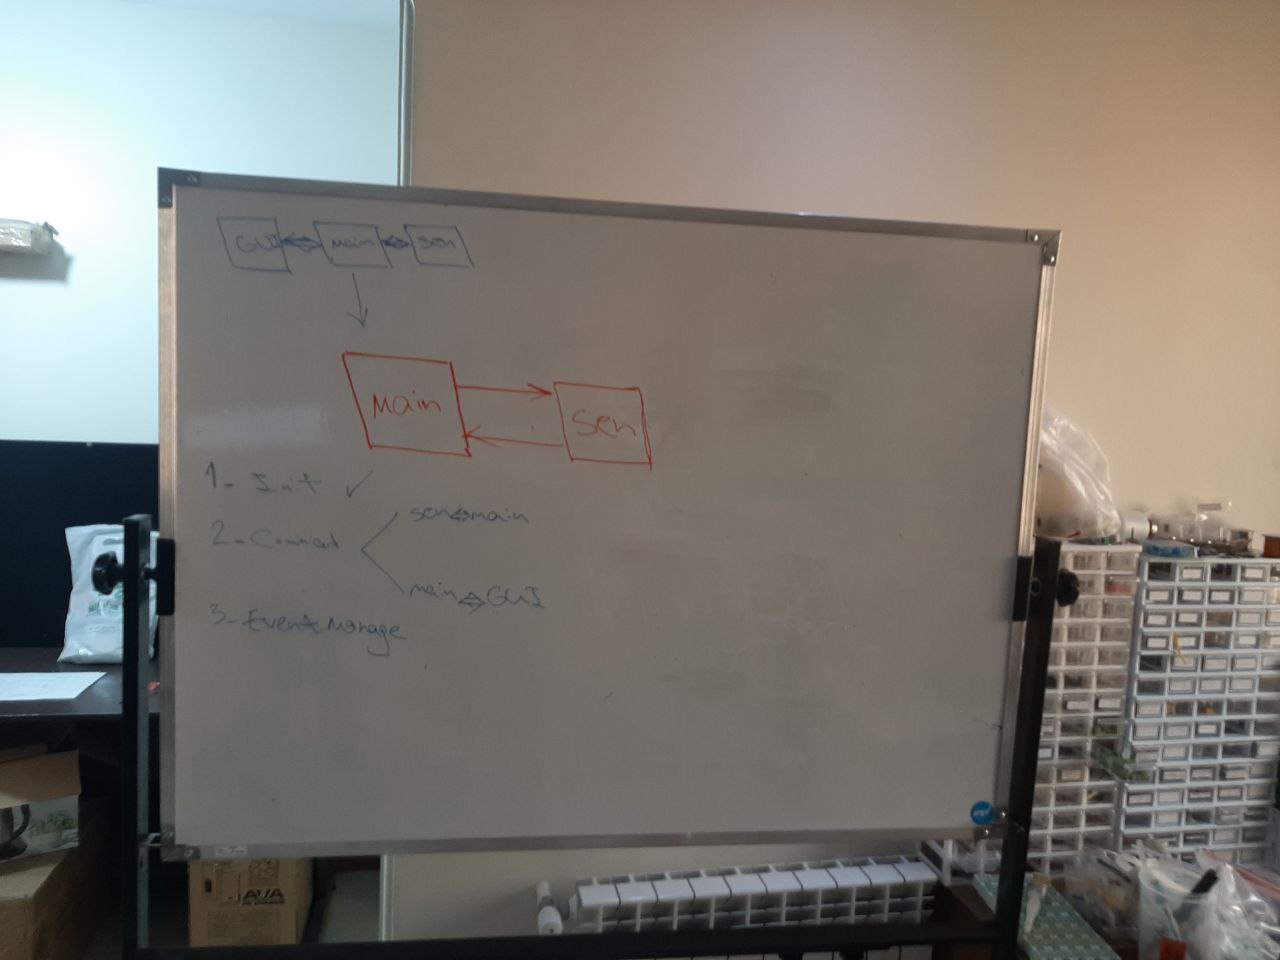 GUI ⇔ Main ⇔ Sen
Main
Sen
1- Init ✓
2-
sen⇔main
main⇔GUI
3- Event Manage
AVA